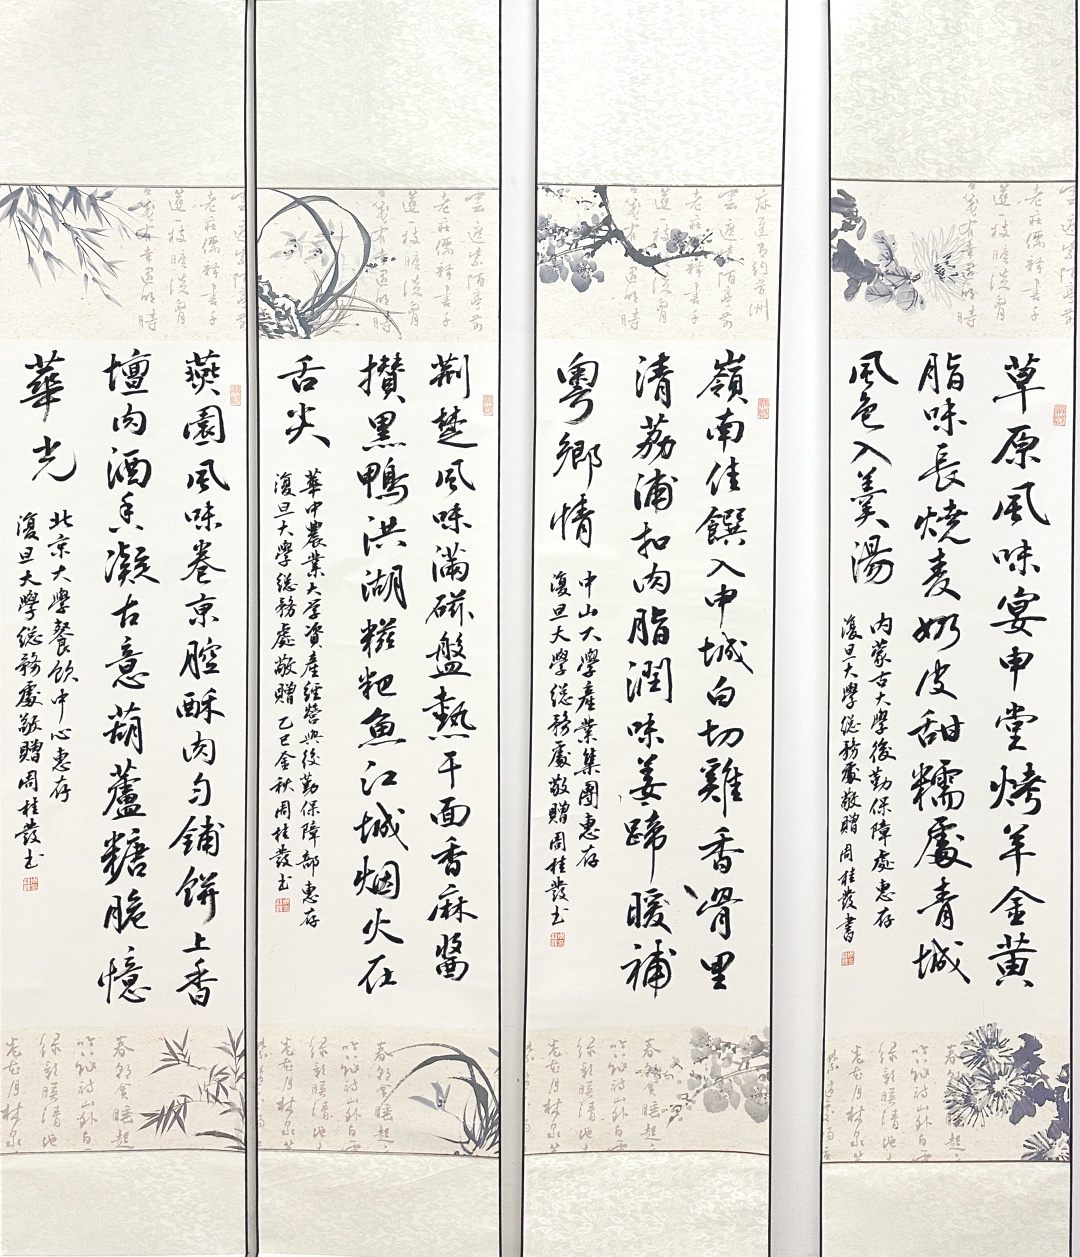 草原風味宴申堂烤羊金黄
脂味長燒麦奶皮甜糯處青城
風色入羹湯
内蒙古大學後勤保障處惠存
復旦大學総務處敬贈周桂發書
嶺南佳饌入申城白切雞香骨里
清荔浦扣肉脂潤味姜蹄暖補
粤鄉情
中山大學產業集團惠存
復旦大學総務處敬贈周桂發书
荆楚風味滿磁盤熱干面香麻醬
攢黑鴨洪湖糍粑魚江城烟火在
舌尖
華中農業大学資産經營與後勤保障部惠存
復旦大學総務處敬贈乙巳金秋周桂發书
燕園風味卷京腔酥肉勻鋪餅上香
壇肉酒香凝古意葫蘆糖脆憶
華光
北京大學餐飲中心惠存
復旦大學総務處敬贈周桂發书